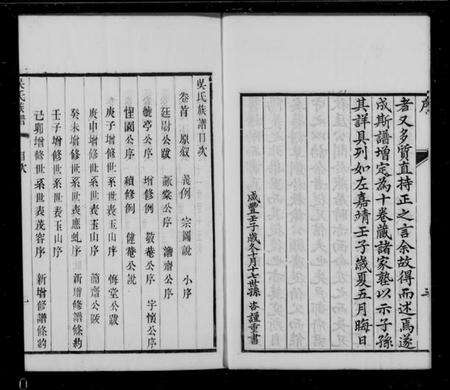 者又多質直持正之言余故得而述焉遂
成斯譜增定為十卷藏諸家塾以示子孫
其詳具列如左嘉靖壬子歲夏五月晦日
咸豐壬子歲冬十月十七世孫 谨重書
吳氏族譜目次
卷首 原叙 義例 宗圖說 小序
廷尉公跋 歗棠公序 澹齋公序
虢亭公序 增修例 敬菴公序 字懷公序
惺園公序 續修例 健菴公說
庚子增修世系世表玉山序 悔堂公跋
庚申增修世系世表玉山序 簡齋公跋
癸未增修世系世表應虬序 新增修譜條約
壬子增修世系世表玉山序
己卯增修世系世表茂容序 新增修譜條約
吳氏族譜 目次 一
序